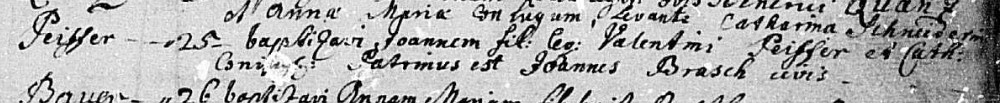 et Annæ Mariæ Conjugum Levante Catharina Schneiderin
Peisser — 25 baptizavi Joannem fil: leg: Valentini Peisser et Cath:
Conjug: Patrinus est Joannes Brasch civis
Bauer — 26 baptizavi Annam Mariam